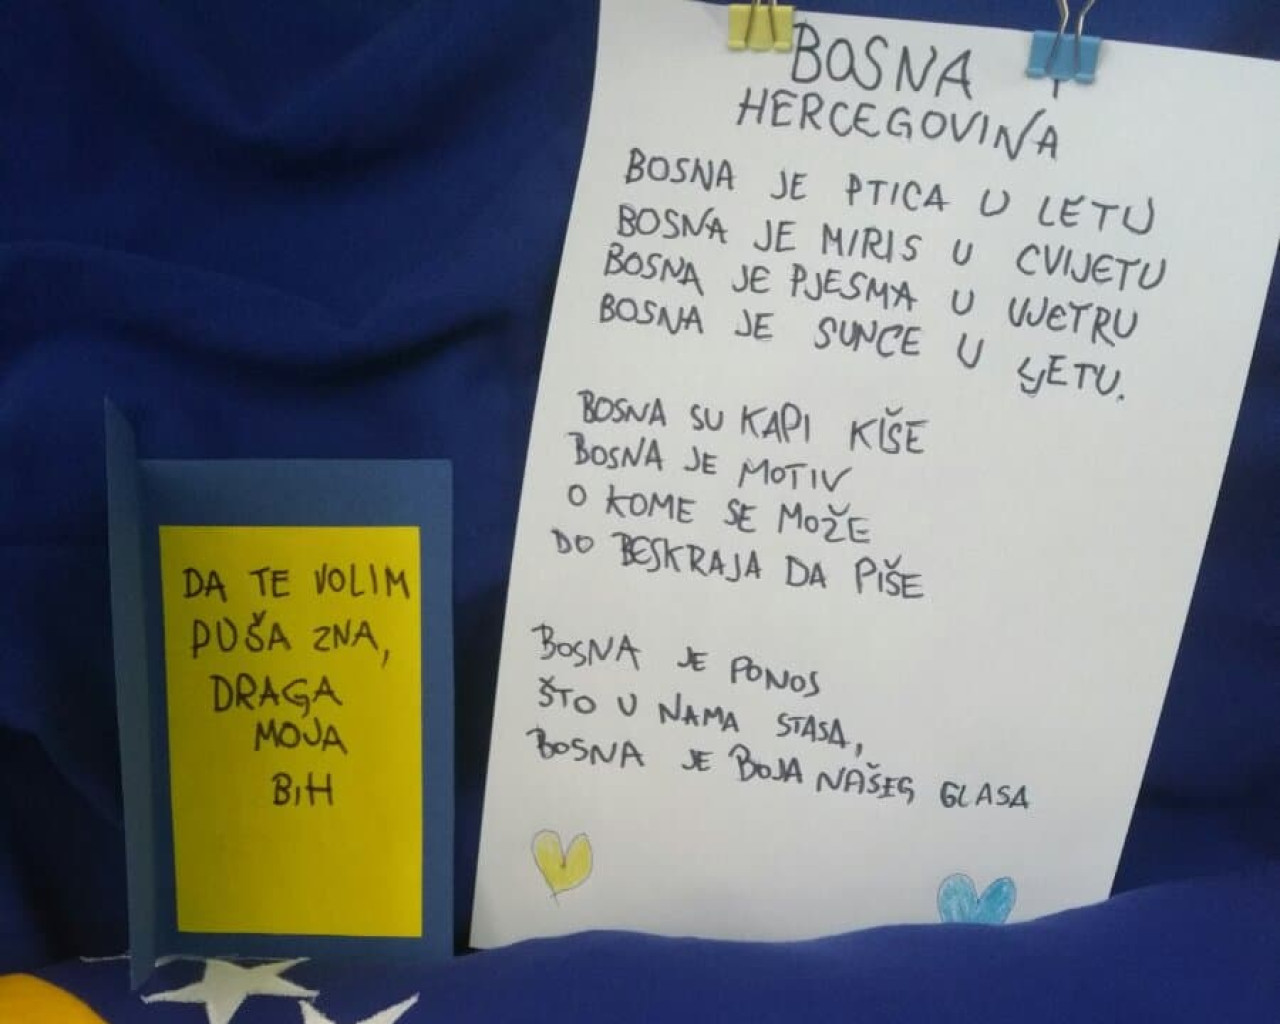 BOSNA I
HERCEGOVINA
BOSNA JE PTICA U LETU
BOSNA JE MIRIS U CVIJETU
BOSNA JE PJESMA U VJETRU
BOSNA JE SUNCE U LJETU.
BOSNA SU KAPI KIŠE
BOSNA JE MOTIV
O KOME SE MOŽE
DO BESKRAJA DA PIŠE
BOSNA JE PONOS
ŠTO U NAMA STASA,
BOSNA JE BOJA NAŠEG GLASA
DA TE VOLIM
DUŠA ZNA,
DRAGA
MOJA
BIH